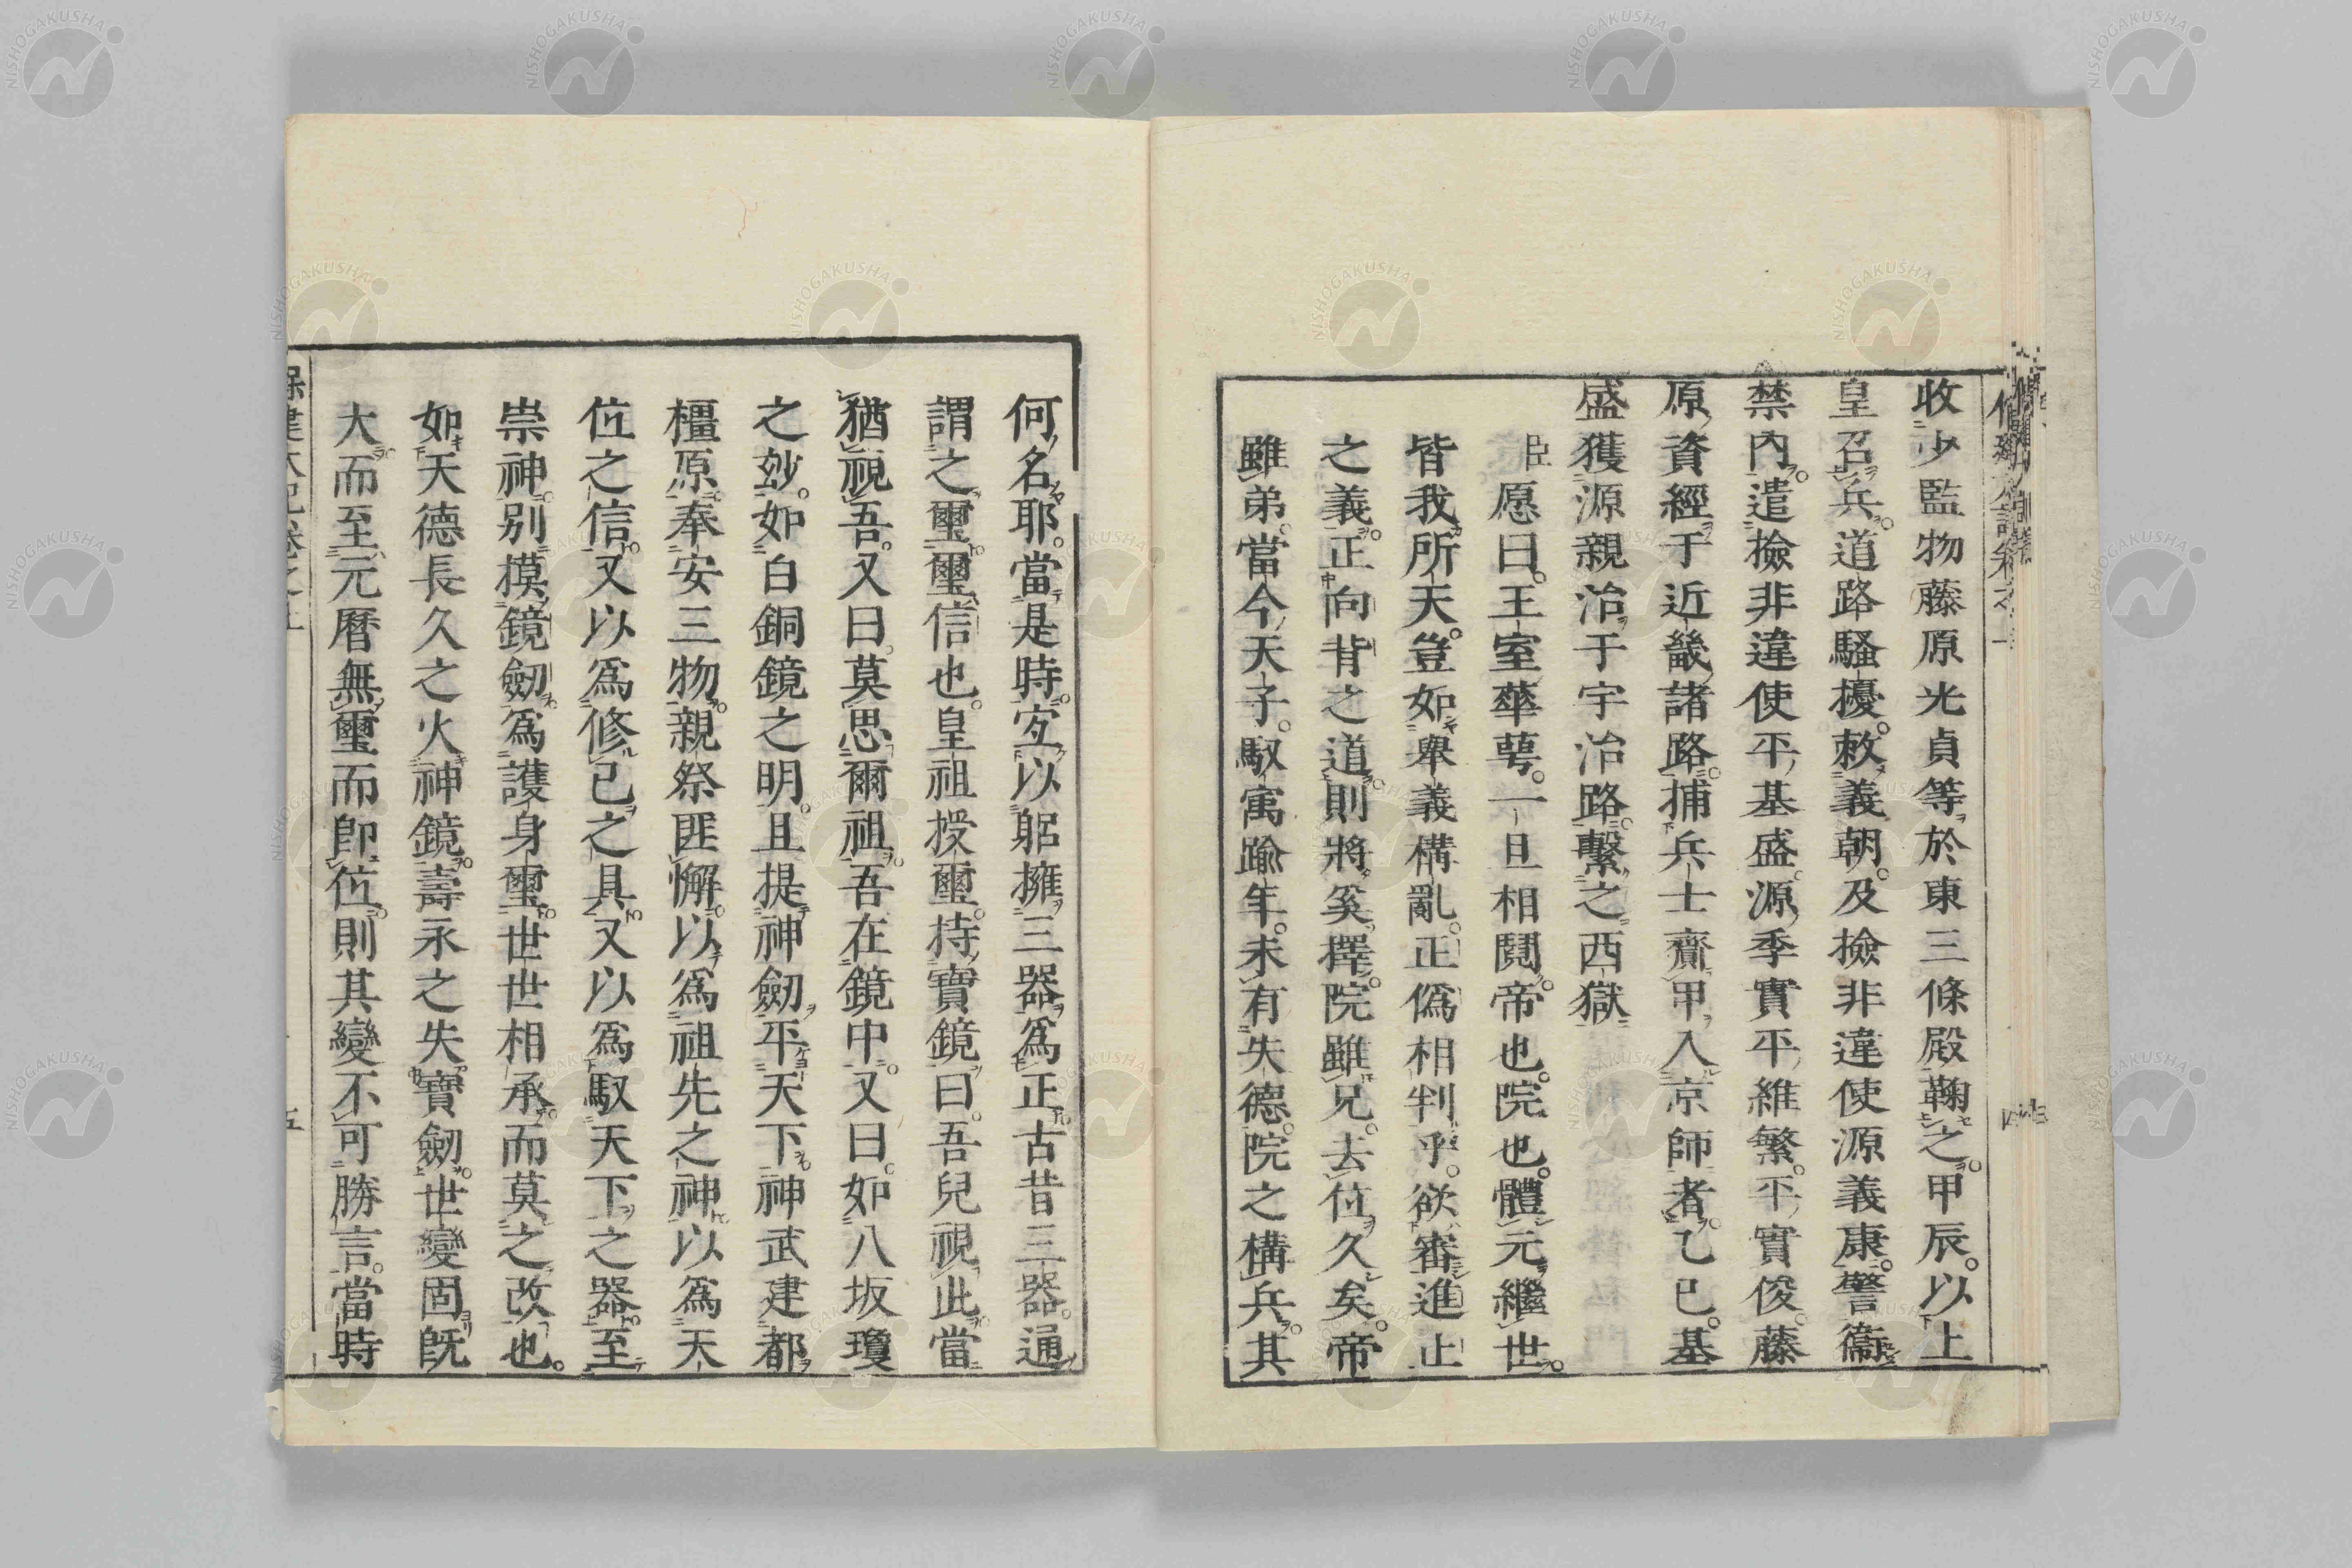 收少監物藤原光貞等於東三條殿鞠之甲辰以上
皇召兵道路騷擾敕義朝及撿非違使源義康警衞
禁內遣撿非違使平基盛源季實平維繁平實俊藤
原資經于近畿諸路捕兵士齎甲入京師者乙巳基
盛獲源親治于宇治路繫之西獄
臣愿曰王室蕐萼一旦相鬩帝也院也體元繼世
皆我所天豈如舉義構亂正僞相判乎欲審進止
之義正向背之道則將奚擇院雖兄去位久矣帝
雖弟當今天子馭寓踰年未有失德院之構兵其
何名耶當是時宐以躬擁三器爲正古昔三器通
謂之璽璽信也皇祖授璽持寶鏡曰吾兒視此當
猶視吾又曰莫思爾祖吾在鏡中又曰如八坂瓊
之玅如白銅鏡之明且提神劒平天下神武建都
橿原奉安三物親祭匪懈以爲祖先之神以爲天
位之信又以爲修已之具又以爲馭天下之器至
崇神別摸鏡劒爲護身璽世世相承而莫之改也
如天德長久之火神鏡壽永之失寶劒世變固既
大而至元曆無璽而卽位則其變不可勝言當時
保建大記卷之上
五
NISHOGAKUSHA